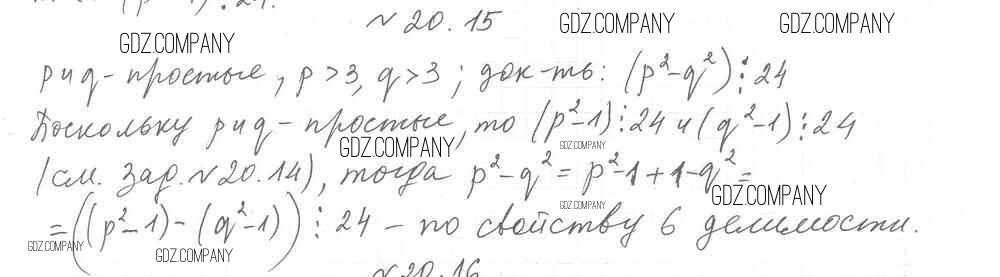 № 20.15
GDZ.COMPANY GDZ.COMPANY GDZ.COMPANY
p и q - простые, p > 3, q > 3; док-ть: (p² - q²) ⋮ 24
Поскольку p и q - простые, то (p² - 1) ⋮ 24 и (q² - 1) ⋮ 24
GDZ.COMPANY GDZ.COMPANY
(см. зад. № 20.14), тогда p² - q² = p² - 1 + 1 - q² =
GDZ.COMPANY GDZ.COMPANY
= ((p² - 1) - (q² - 1)) ⋮ 24 - по свойству 6 делимости.
GDZ.COMPANY GDZ.COMPANY
№ 20.16